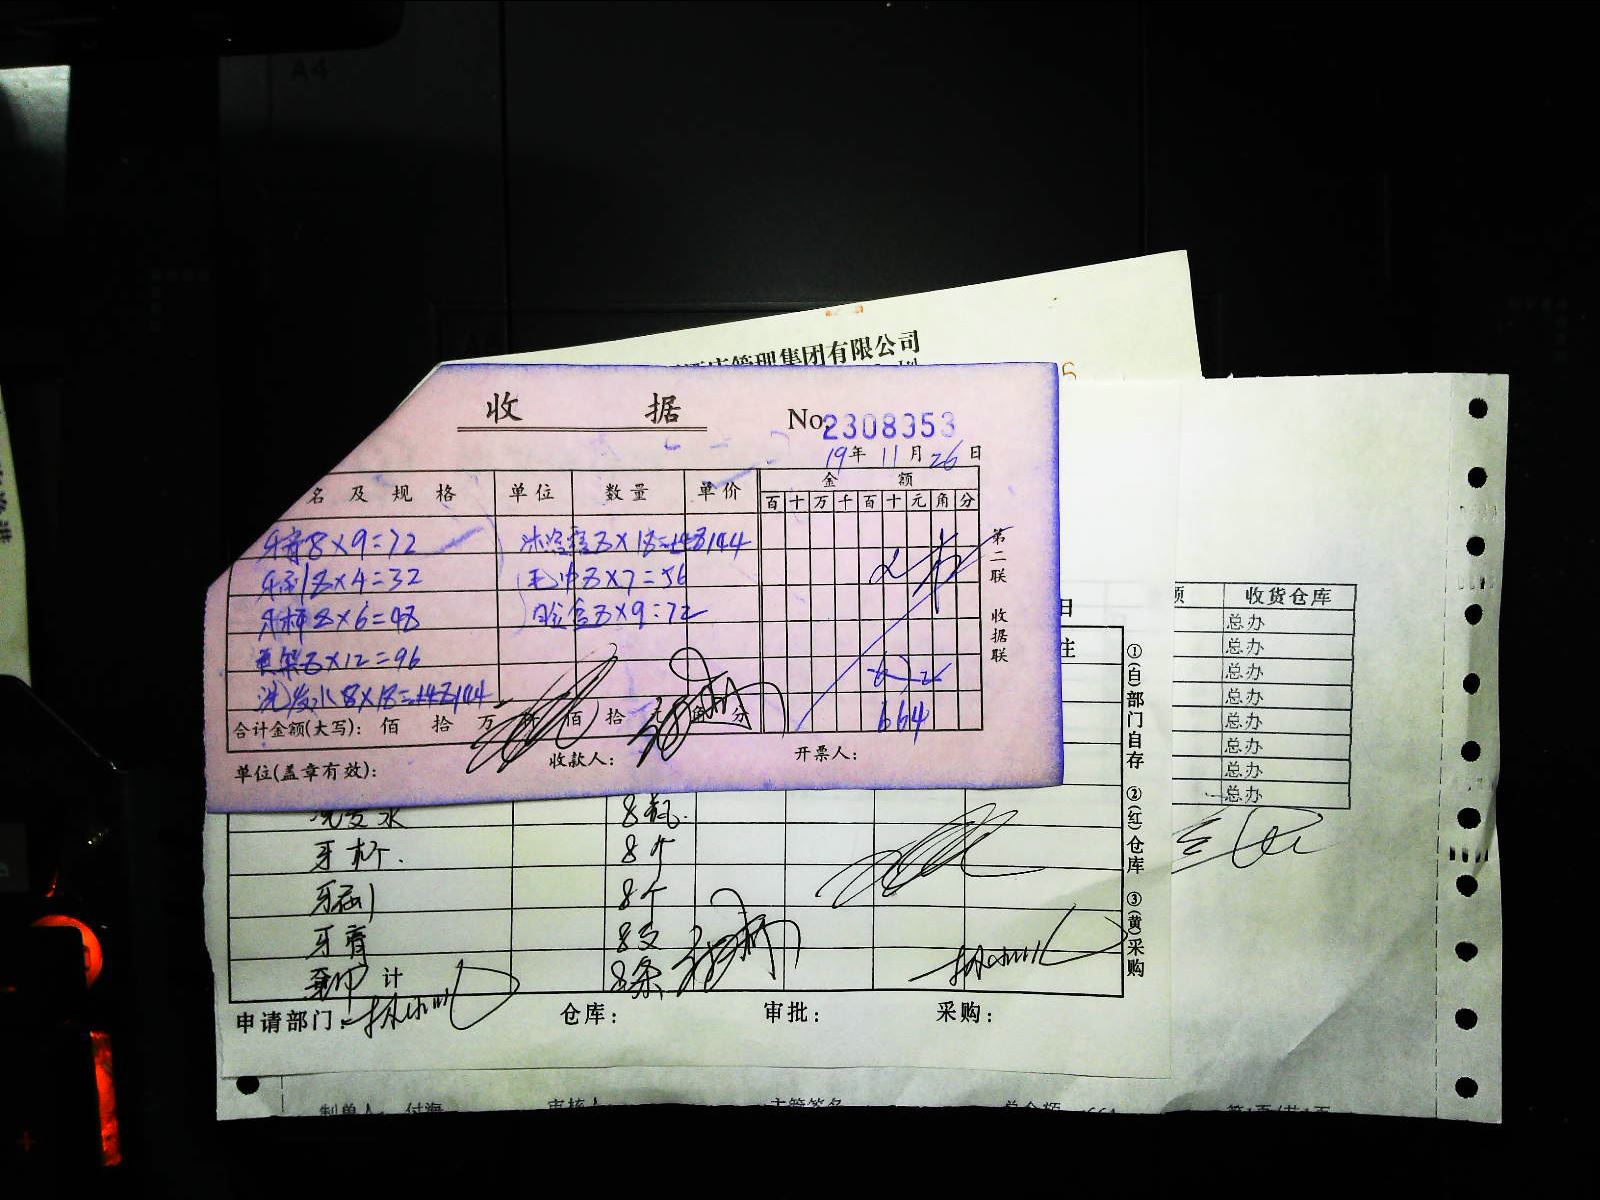 管理集团有限公司
收 据
No.2308353
19年 11月 26日
名 及 规 格 单位 数量 单价 金 额
百 十 万 千 百 十 元 角 分
牙膏8×9=72
8×18=144
牙刷8×4=32 毛巾8×7=56
牙杯8×6=48
8×9=72
8×12=96
洗发水8×18=144
合计金额(大写): 佰 拾 万 仟 佰 拾 元 角 分
664
单位(盖章有效): 收款人: 开票人:
第二联 收据联
日
注
额 收货仓库
总办
总办
总办
总办
总办
总办
总办
总办
洗发水 8瓶.
牙杯. 8个
牙刷 8个
牙膏 8支
计 8条
申请部门: 仓库: 审批: 采购:
①(白)部门自存 ②(红)仓库 ③(黄)采购
制单人: 付海 审核人 主管签名 总金额 664 第1页/共1页